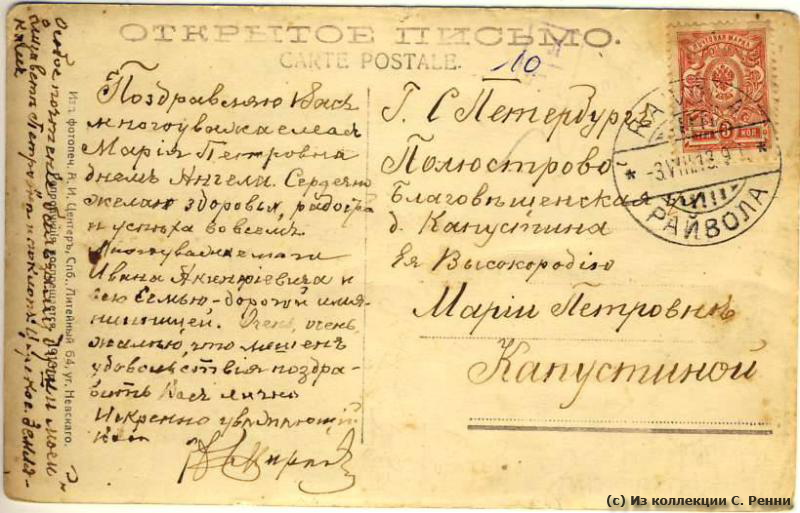 ОТКРЫТОЕ ПИСЬМО.
CARTE POSTALE.
10
Поздравляю Васъ
многоуважаемая
Марія Петровна
днемъ Ангела. Сердечно
желаю здоровья, радости
и успѣха во всемъ.
Многоуважаемаго
Ивана Акинфіевича и
всю Семью - дорогой имя-
нинницей. Очень, очень
жалѣю что лишенъ
удовольствія поздра-
вить Васъ лично
Искренно уважающій
Васъ
Особое почтение
Г. С Петербургъ
Полюстрово
Благовѣщенская
д. Капустина
Ея Высокородію
Маріи Петровнѣ
Капустиной
ПОЧТОВАЯ МАРКА
КОП
3.VIII.13.9
РАЙВОЛА
Изд. фотопеч. И. Центеръ, Спб., Литейный 64, уг. Невскаго.
(c) Из коллекции С. Ренни